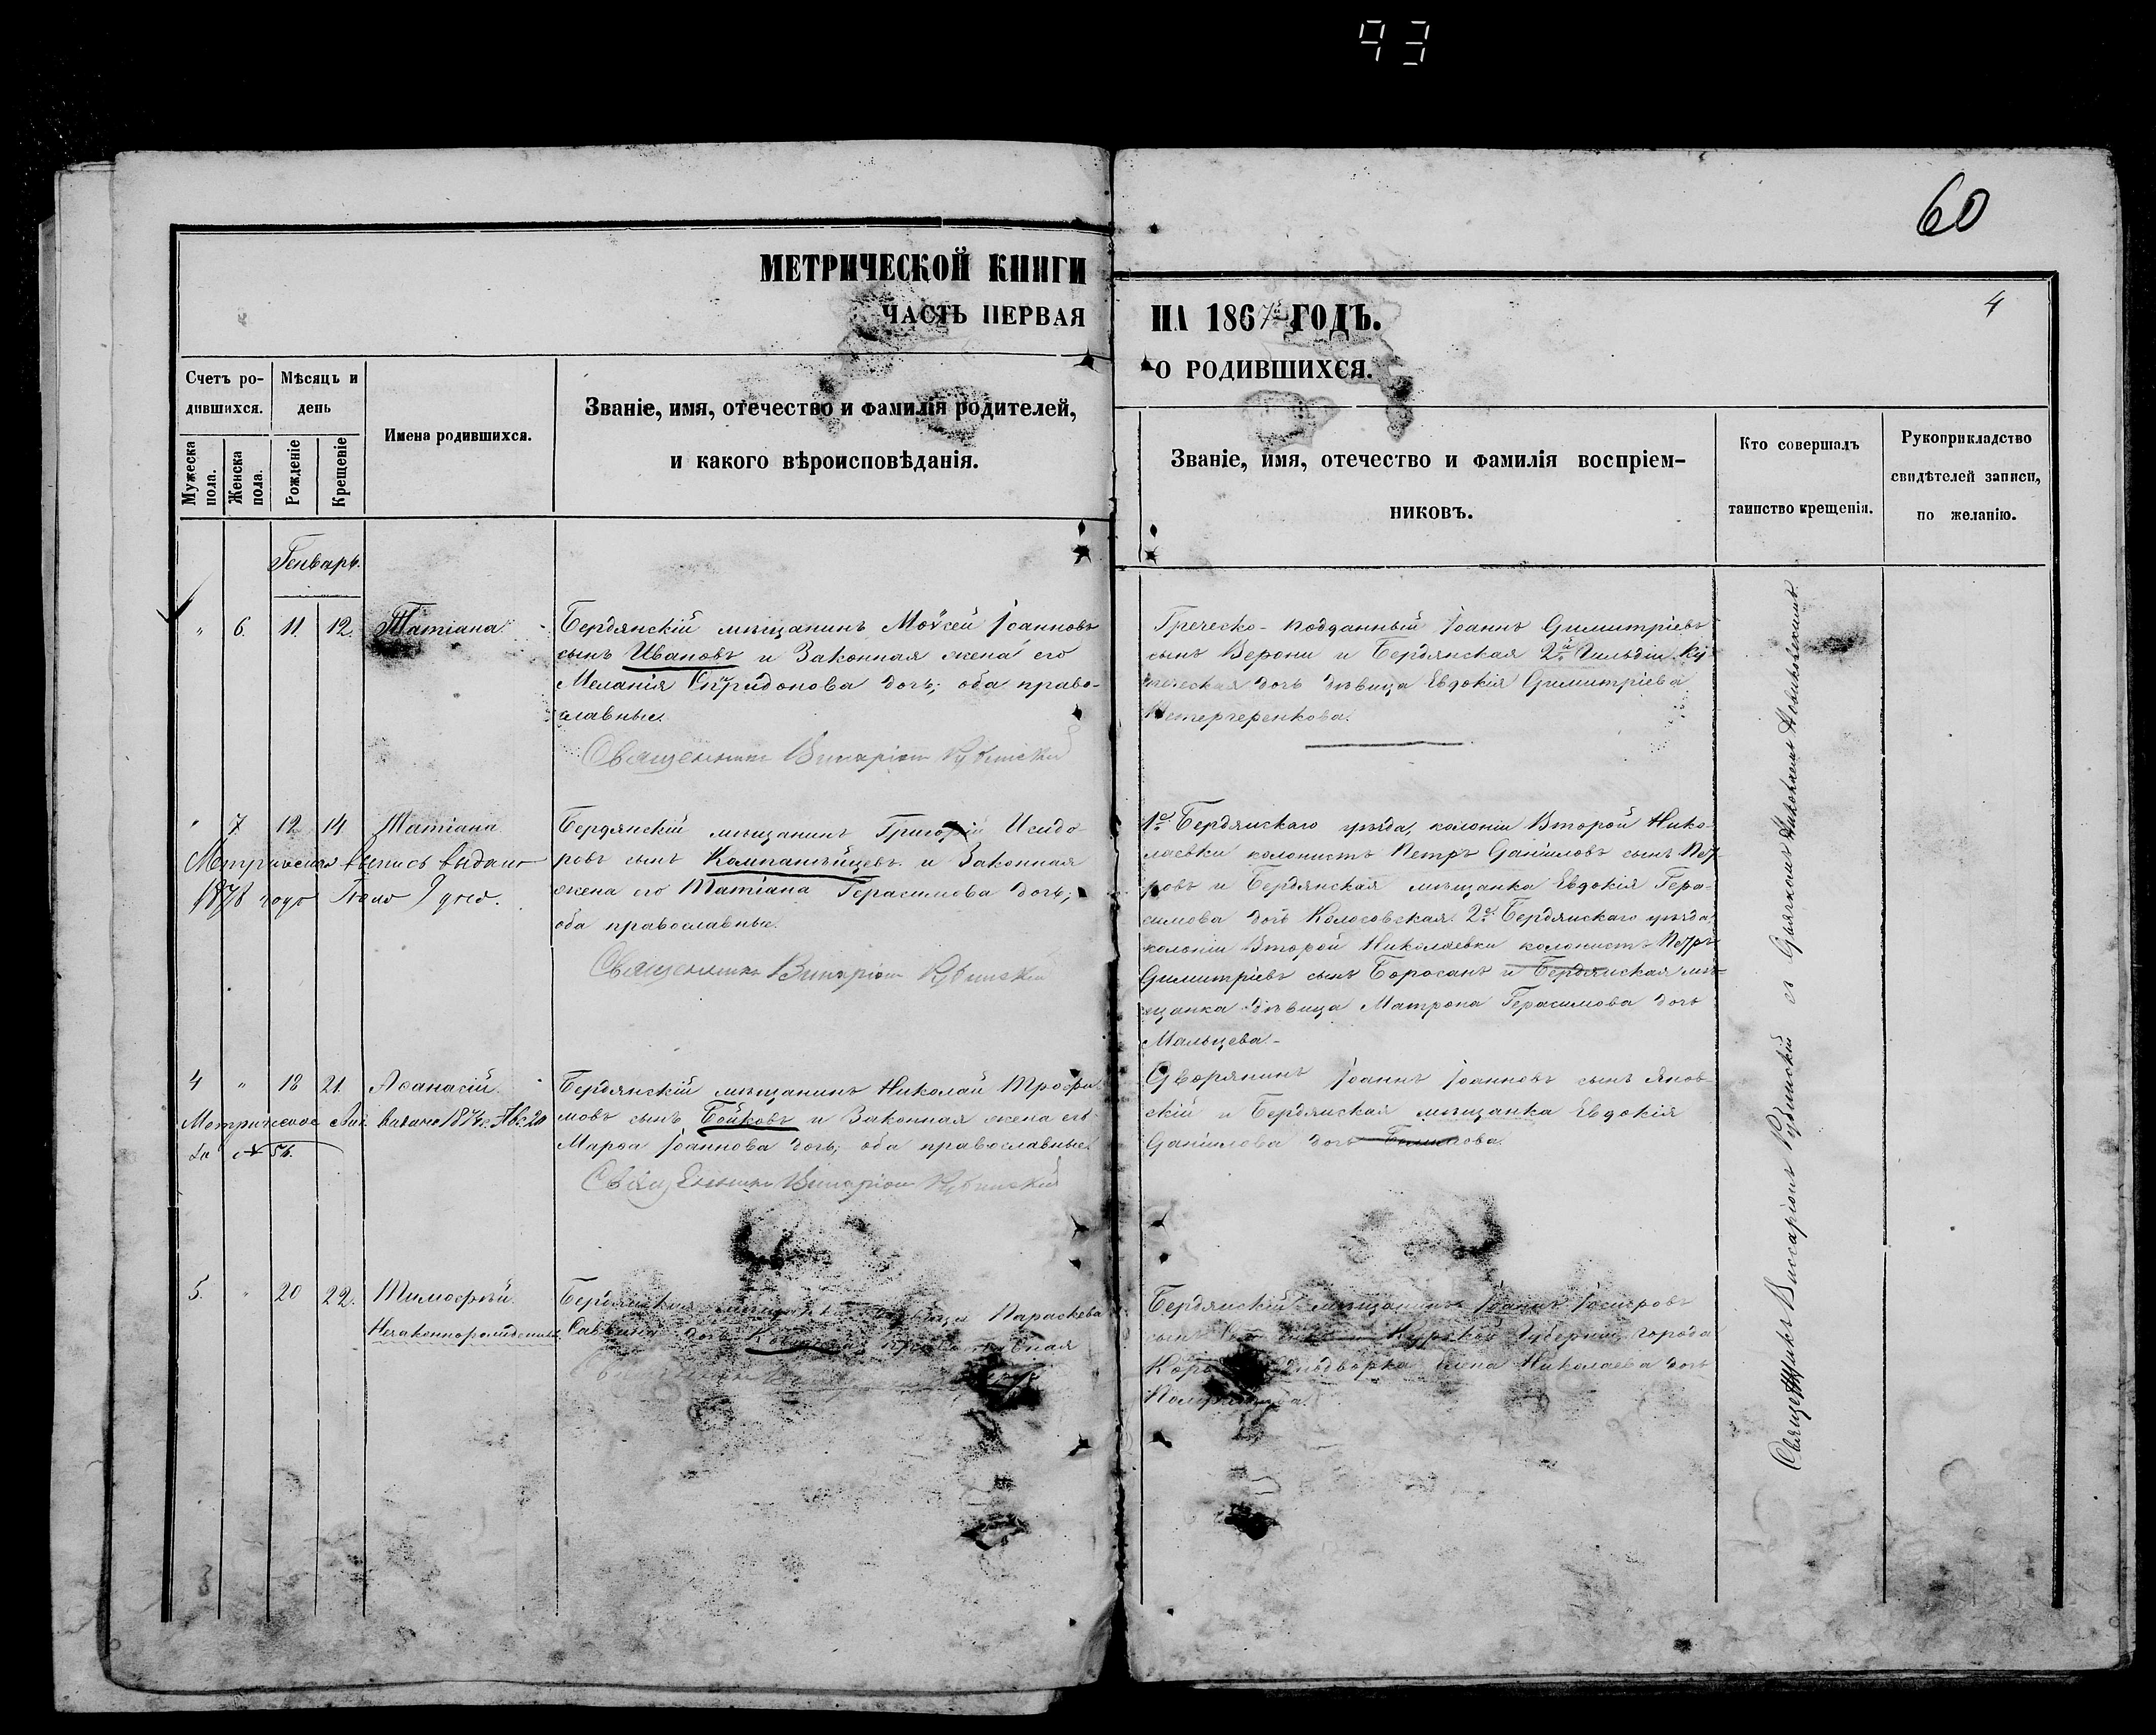 93
60
МЕТРИЧЕСКОЙ КНИГИ
НА 1867й ГОДЪ.
4
ЧАСТЬ ПЕРВАЯ
О РОДИВШИХСЯ.
Счетъ ро-
дившихся.
Мужеска
пола.
Женска
пола.
Мѣсяцъ и
день
Рожденіе
Крещеніе
Имена родившихся.
Званіе, имя, отечество и фамилія родителей,
и какого вѣроисповѣданія.
Званіе, имя, отечество и фамилія воспріем-
никовъ.
Кто совершалъ
таинство крещенія.
Рукоприкладство
свидѣтелей записи,
по желанію.
Генварь.
" 6. 11. 12. Татіана.
Бердянскій мѣщанинъ Моѵсей Іоанновъ
сынъ Ивановъ и Законная жена его
Меланія Спиридонова дочь; оба право-
славные.
Священникъ Виссаріонъ Рубинскій
Греческо-подданный Іоаннъ Димитріевъ
сынъ Верони и Бердянская 2й Гильдіи Ку-
печеская дочь дѣвица Евдокія Димитріева
" 7 12 14 Татіана
Метрическая выпись выдана
1878 года
Бердянскій мѣщанинъ Григорій Исидо-
ровъ сынъ Компанѣйцевъ и Законная
жена его Татіана Герасимова дочь;
оба православные.
Священникъ Виссаріонъ Рубинскій
1е Бердянскаго уѣзда, колоніи Второй Нико-
лаевки колонистъ Петръ Даніиловъ сынъ
и Бердянская мѣщанка Евдокія Гера-
симова дочь Колосовская. 2е Бердянскаго уѣзда,
колоніи Второй Николаевки колонистъ Петръ
Димитріевъ сынъ Боросанъ и Бердянская мѣ-
щанка дѣвица Матрона Герасимова дочь
Мальцева.
4 " 18 21. Аѳанасій.
Метрическое выдано 1874 г. 20
за № 54.
Бердянскій мѣщанинъ Николай Трофи-
мовъ сынъ Бойковъ и Законная жена его
Марѳа Іоаннова дочь; оба православные.
Священникъ Виссаріонъ Рубинскій
Дворянинъ Іоаннъ Іоанновъ сынъ Янов-
скій и Бердянская мѣщанка Евдокія
Даніилова дочь
5. " 20 22. Тимоѳей.
Незаконнорожденный.
Бердянская мѣщанка дѣвица Параскева
Саввина дочь православная
Священникъ
Бердянскій мѣщанинъ Іоаннъ
сынъ Курской Губерніи, города
Елена Николаева дочь
Священникъ Виссаріонъ Рубинскій съ Діякономъ Николаемъ